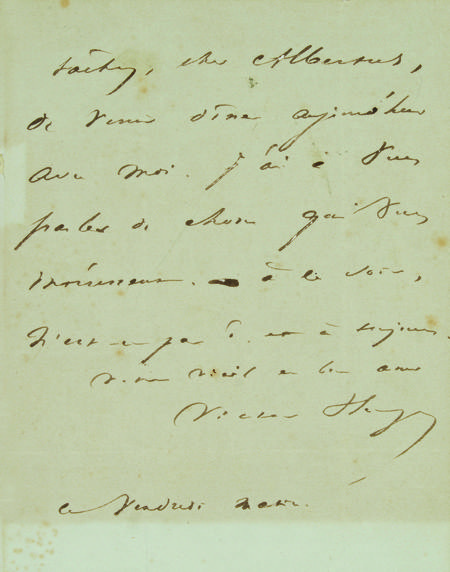 tâchez, cher Albertus,
de venir dîner aujourd'hui
avec moi. j'ai à vous
parler de choses qui vous
intéressent. — à ce soir,
n'est-ce pas ? et à toujours.
votre vieil et bon ami
Victor Hugo
ce vendredi matin.